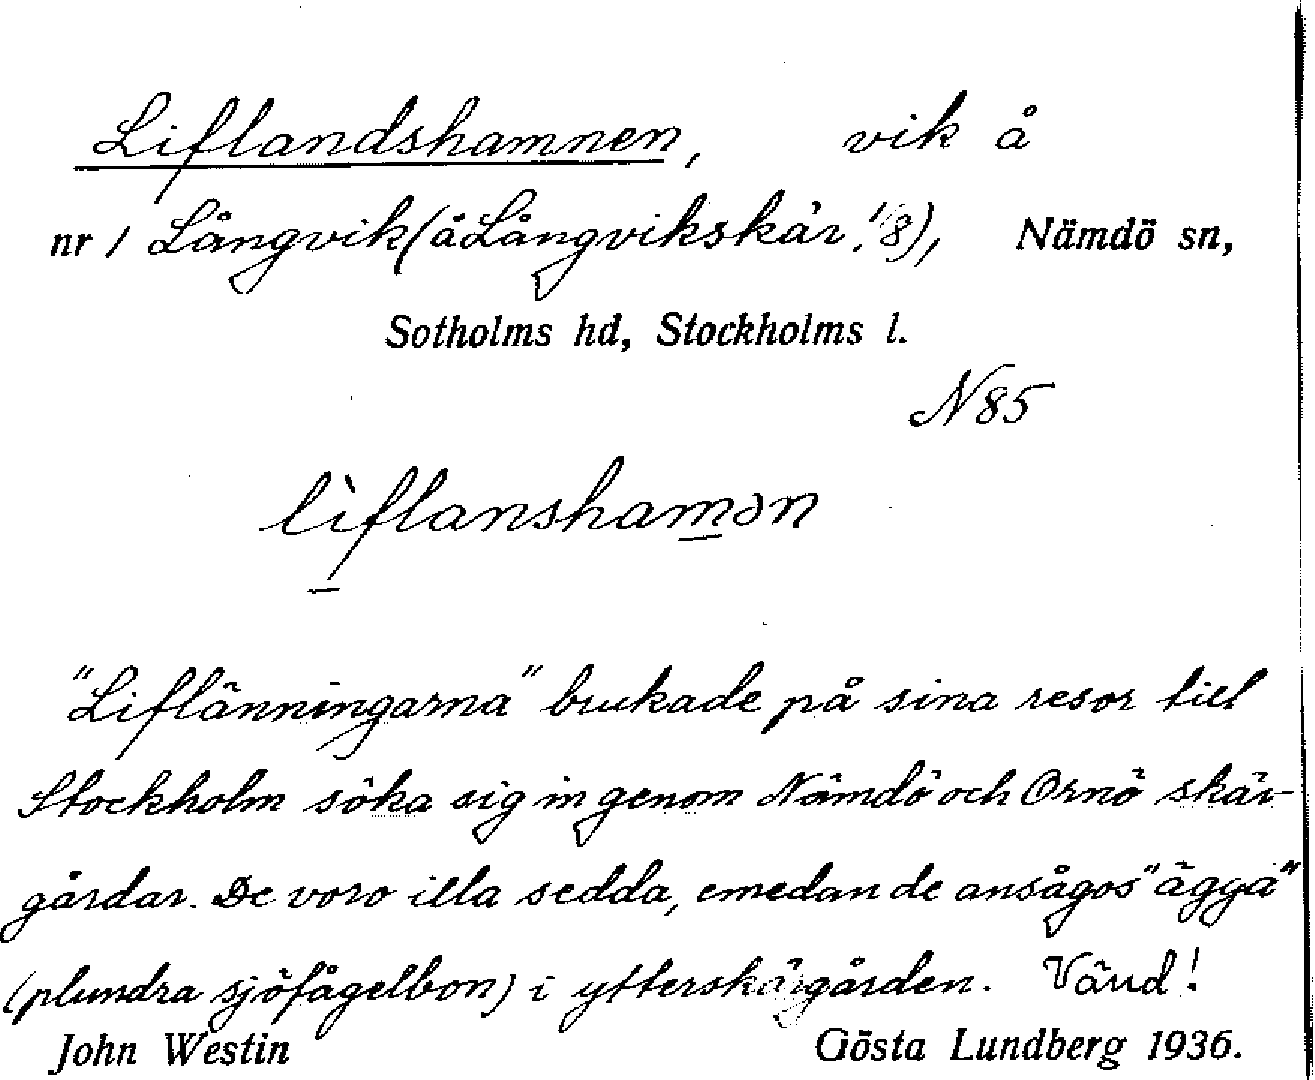 Liflandshamnen, vik å
nr 1 Långvik (å Långvikskär 1/8), Nämdö sn,
Sotholms hd, Stockholms l.
N 85
lìflanshamən
"Liflänningarna" brukade på sina resor till
Stockholm söka sig in genom Nämdö och Ornö skär-
gårdar. De voro illa sedda, emedan de ansågos "äggä"
(plundra sjöfågelbon) i ytterskärgården. Vänd!
John Westin Gösta Lundberg 1936.